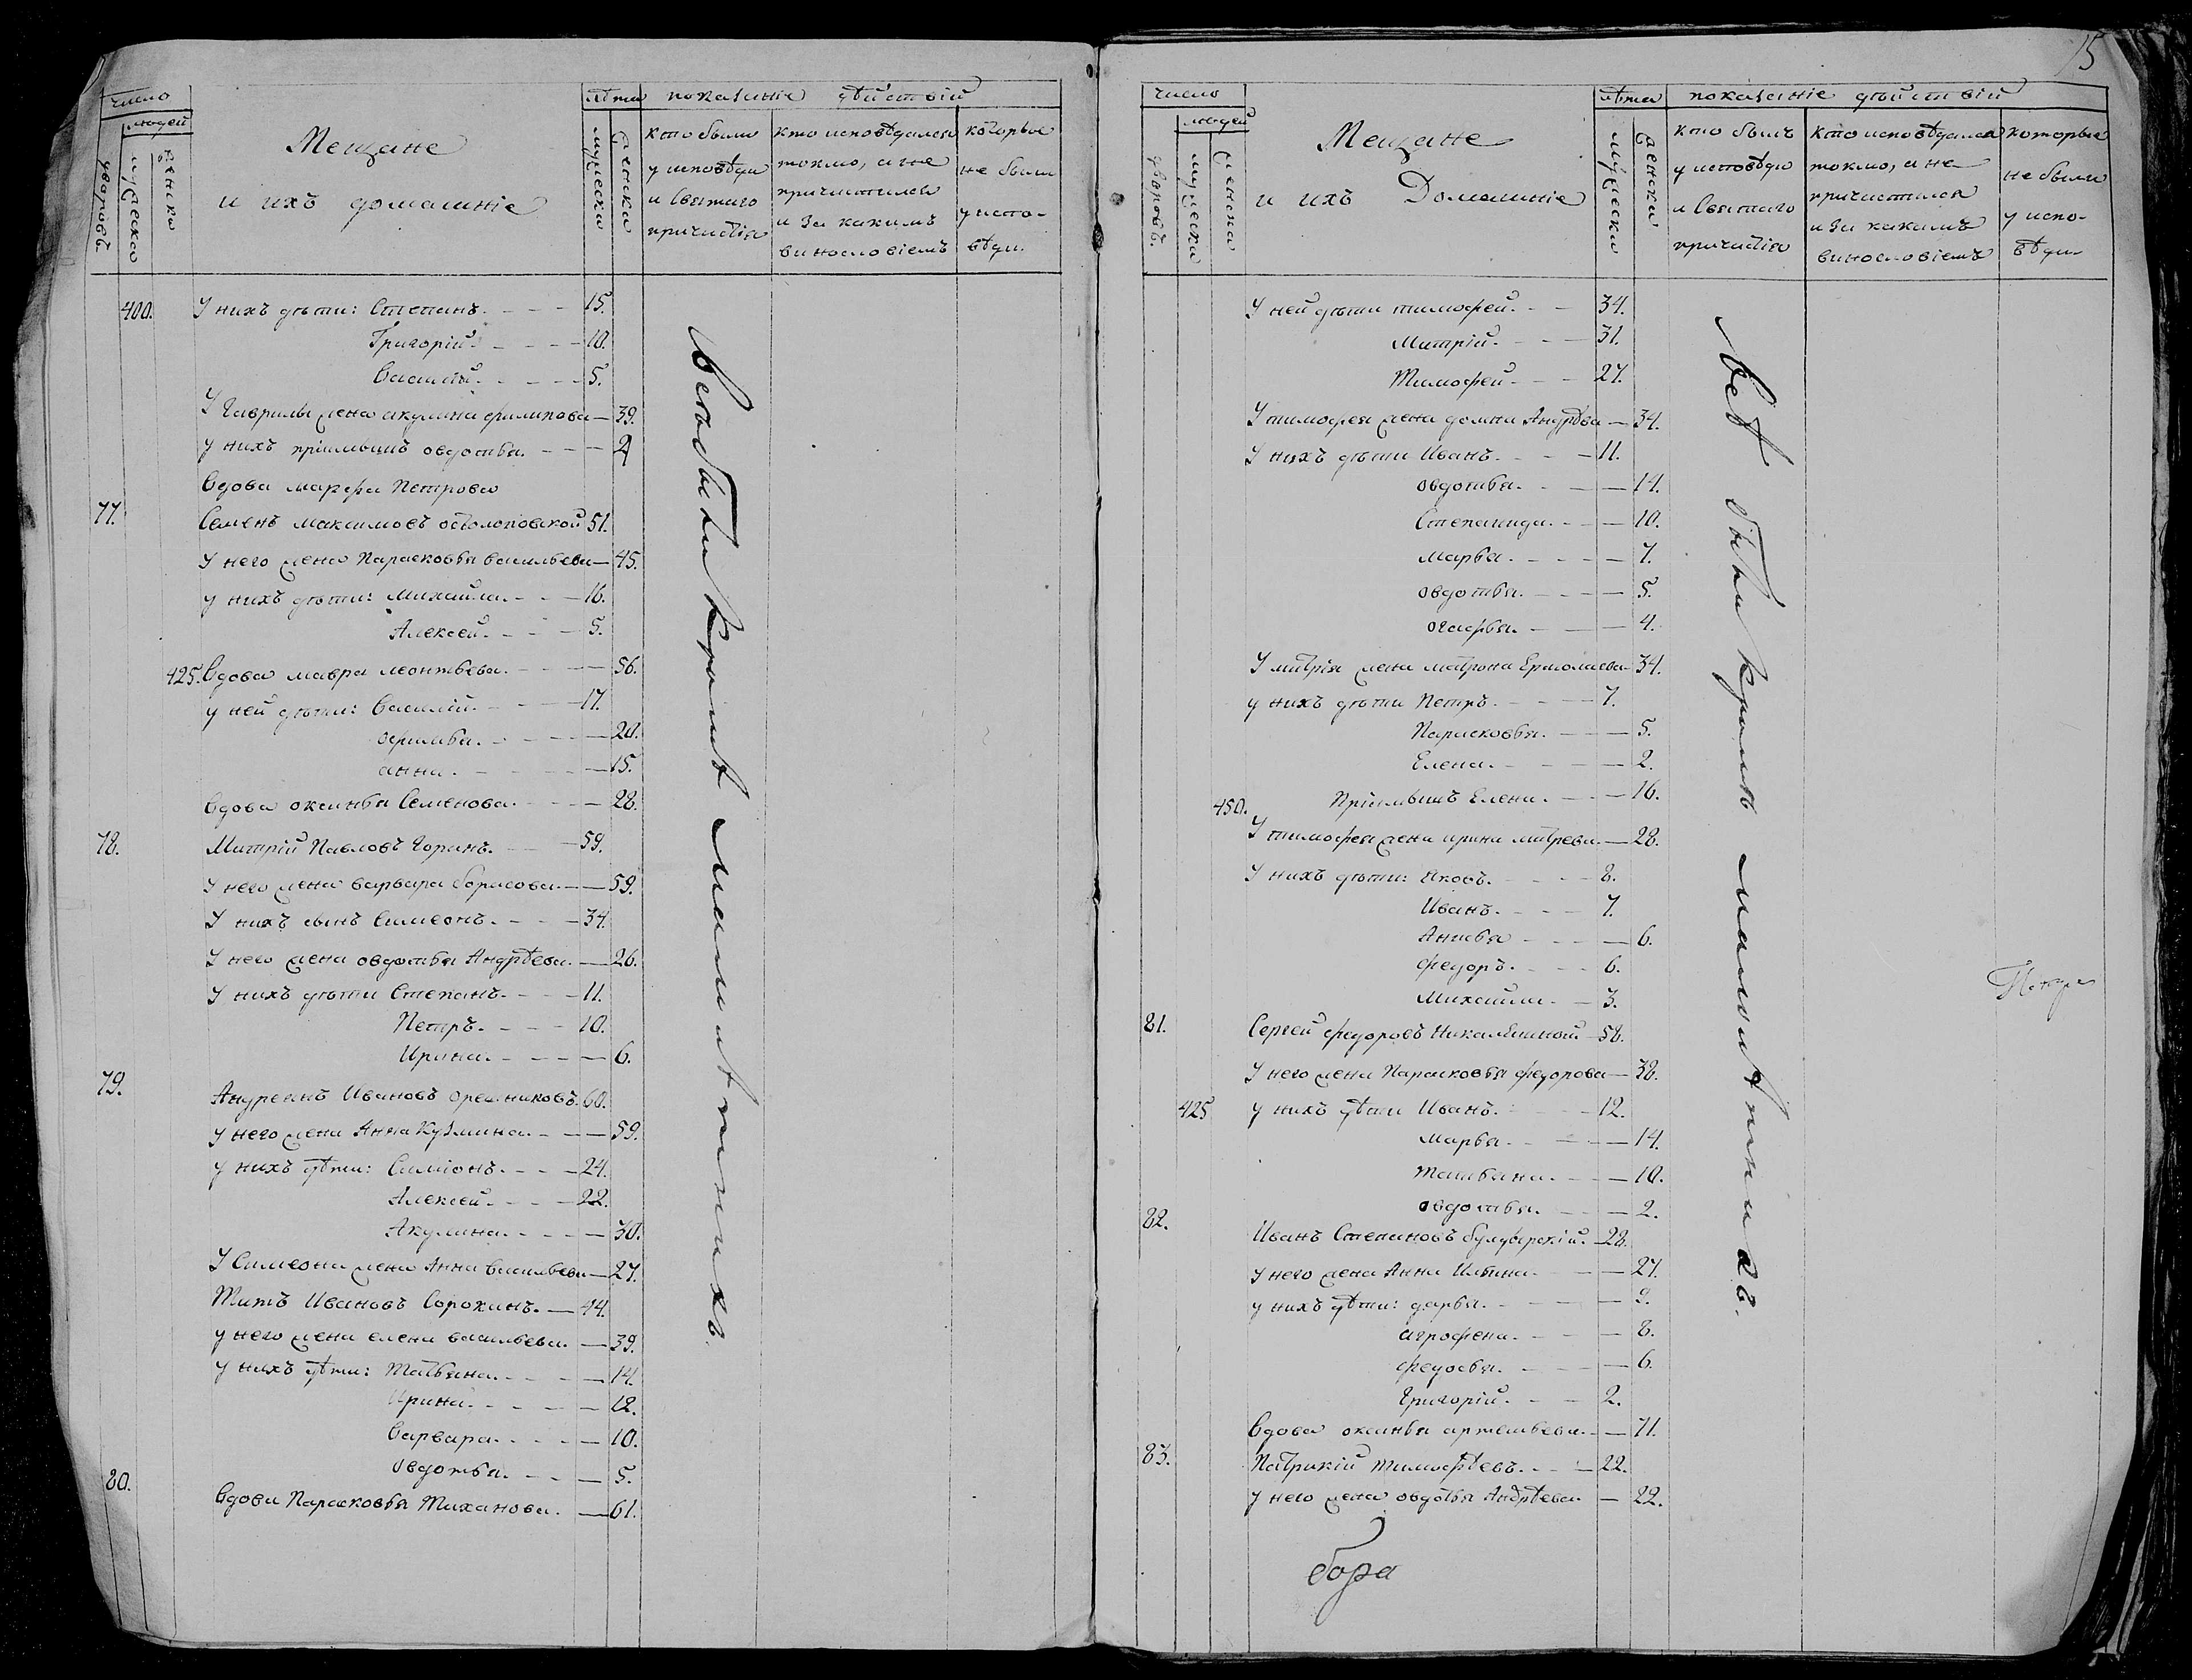 число
людей
дворовъ.
мужеска
женска
Мещане
и ихъ домашнiе
лѣта
мужески
женски
показанiе дѣйствiй
кто были
у исповѣди
и святаго
причастiя
кто исповѣдался
токмо, а не
причастился
и за какимъ
винословiемъ
которые
не были
у испо-
вѣди.
400. У нихъ дѣти: Степанъ. 15.
Григорiй. 10.
Василiй. 5.
У Гаврилы жена акулина филипова 39.
у нихъ прiимышъ овдотья. 2
Вдова марфа Петрова
77. Семенъ максимовъ 51.
У него жена Парасковья васильева 45.
у нихъ дѣти: михаила. 16.
Алексей. 5.
425. Вдова мавра леонтьева. 56.
у ней дѣти: Василiй. 17.
офимья. 20.
анна. 15.
Вдова оксинья Семенова. 28.
78. Митрiй Павловъ Горинъ. 59.
У него жена варвара борисова 59.
У нихъ сынъ Симеонъ. 34.
У него жена овдотья Андрѣева. 26.
У нихъ дѣти Степанъ. 11.
Петръ. 10.
Ирина. 6.
79. Андреянъ Ивановъ орешниковъ. 60.
У него жена Анна Кузмина. 59.
у нихъ дѣти: Симiонъ. 24.
Алексей. 22.
Акулина. 30.
У Симеона жена Анна васильева 27.
Титъ Ивановъ Сорокинъ. 44.
у него жена елена васильева. 39.
у нихъ дѣти: Татьяна. 14.
Ирина. 12.
Варвара. 10.
Овдотья. 5.
80. Вдова Парасковья Тиханова. 61.
всѣ были кромѣ малолѣтнихъ.
15
число
людей
дворовъ.
мужеска
женска
Мещане
и ихъ Домашнiе
лѣта
мужески
женски
показанiе дѣйствiй
кто былъ
у исповѣди
и святаго
причастiя
кто исповѣдался
токмо, а не
причастился
и за какимъ
винословiемъ
которые
не были
у испо-
вѣди
У ней дѣти тимофей. 34.
Митрiй. 31.
Тимофей. 27.
У тимофея жена домна Андрѣева 34.
У нихъ дѣти Иванъ. 11.
овдотья. 14.
Степанида. 10.
марья. 7.
овдотья. 5.
огафья. 4.
У митрiя жена матрона Ермолаева 34.
у нихъ дѣти Петръ. 7.
Парасковья. 5.
Елена. 2.
450. Прiимышъ Елена. 16.
У тимофея жена ирина митрева. 28.
У нихъ дѣти: Яковъ. 8.
Иванъ. 7.
Анисья 6.
федоръ. 6.
михаила. 3.
81. Сергей федоровъ 58.
У него жена Парасковья федорова 38.
425 у нихъ дѣти Иванъ. 12.
марья. 14.
татьяна. 10.
овдотья. 2.
82. Иванъ Степановъ 28.
У него жена Анна Ильина. 27.
у нихъ дѣти: дарья. 9.
агрофена. 8.
федосья. 6.
Григорiй. 2.
Вдова оксинья артемьева. 71.
83. Патрикiй тимофѣевъ. 22.
у него жена овдотья Андрѣева 22.
всѣ были кромѣ малолѣтнихъ.
бора